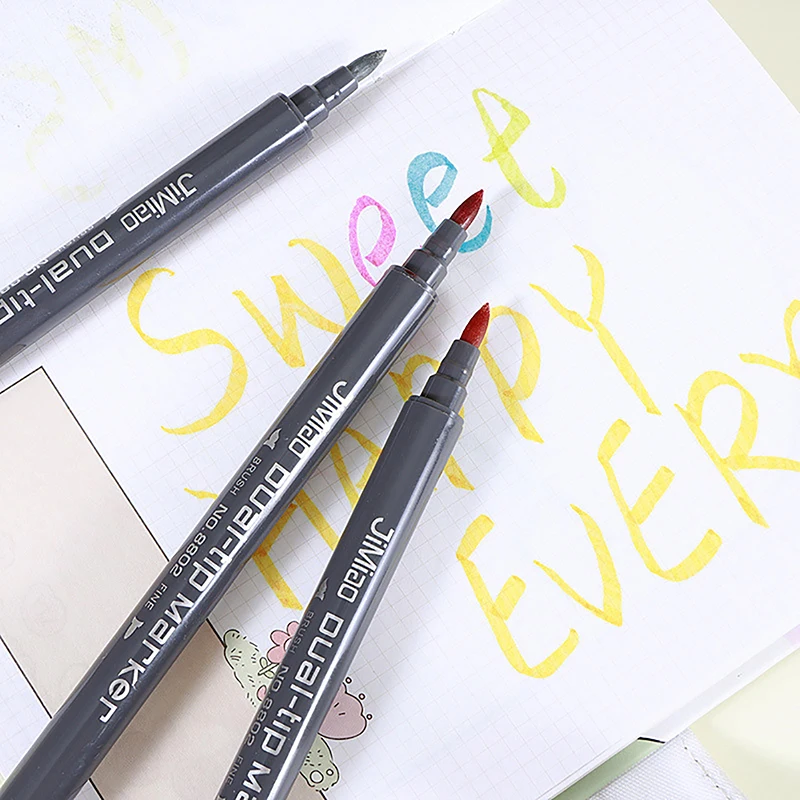 Sweet
HAPPY
EVERY
JiMiao Dual-tip
JiMiao Dual-tip Marker
BRUSH NO.8802 FINE
JiMiao Dual-tip Ma
BRUSH NO.8802 FINE